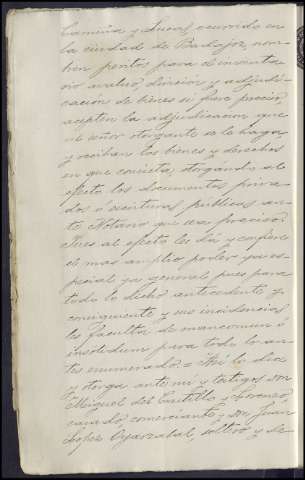 Camiña y Lucas, ocurrido en
la ciudad de Badajoz, nom-
bren peritos para el inventa-
rio avaluo, división y adjudi-
cación de bienes si fuere preciso,
acepten la adjudicacion que
al señor otorgante se le haga
y reciban los bienes y derechos
en que consista, otorgando al
efecto los documentos priva-
dos ó escrituras públicas an-
te Notario que sea preciso.
Pues al efecto les dá y confiere
el mas amplio poder ya es-
pecial ya general pues para
todo lo dicho antecedente y
consiguiente y sus incidencias
les faculta de mancomun é
insolidum para todo lo an-
tes enumerado. = Asi lo dice
y otorga ante mi y testigos Don
Miguel del Castillo y Lorenzo,
casado, comerciante y Don Juan
Lopez Oyarzabal, soltero y de